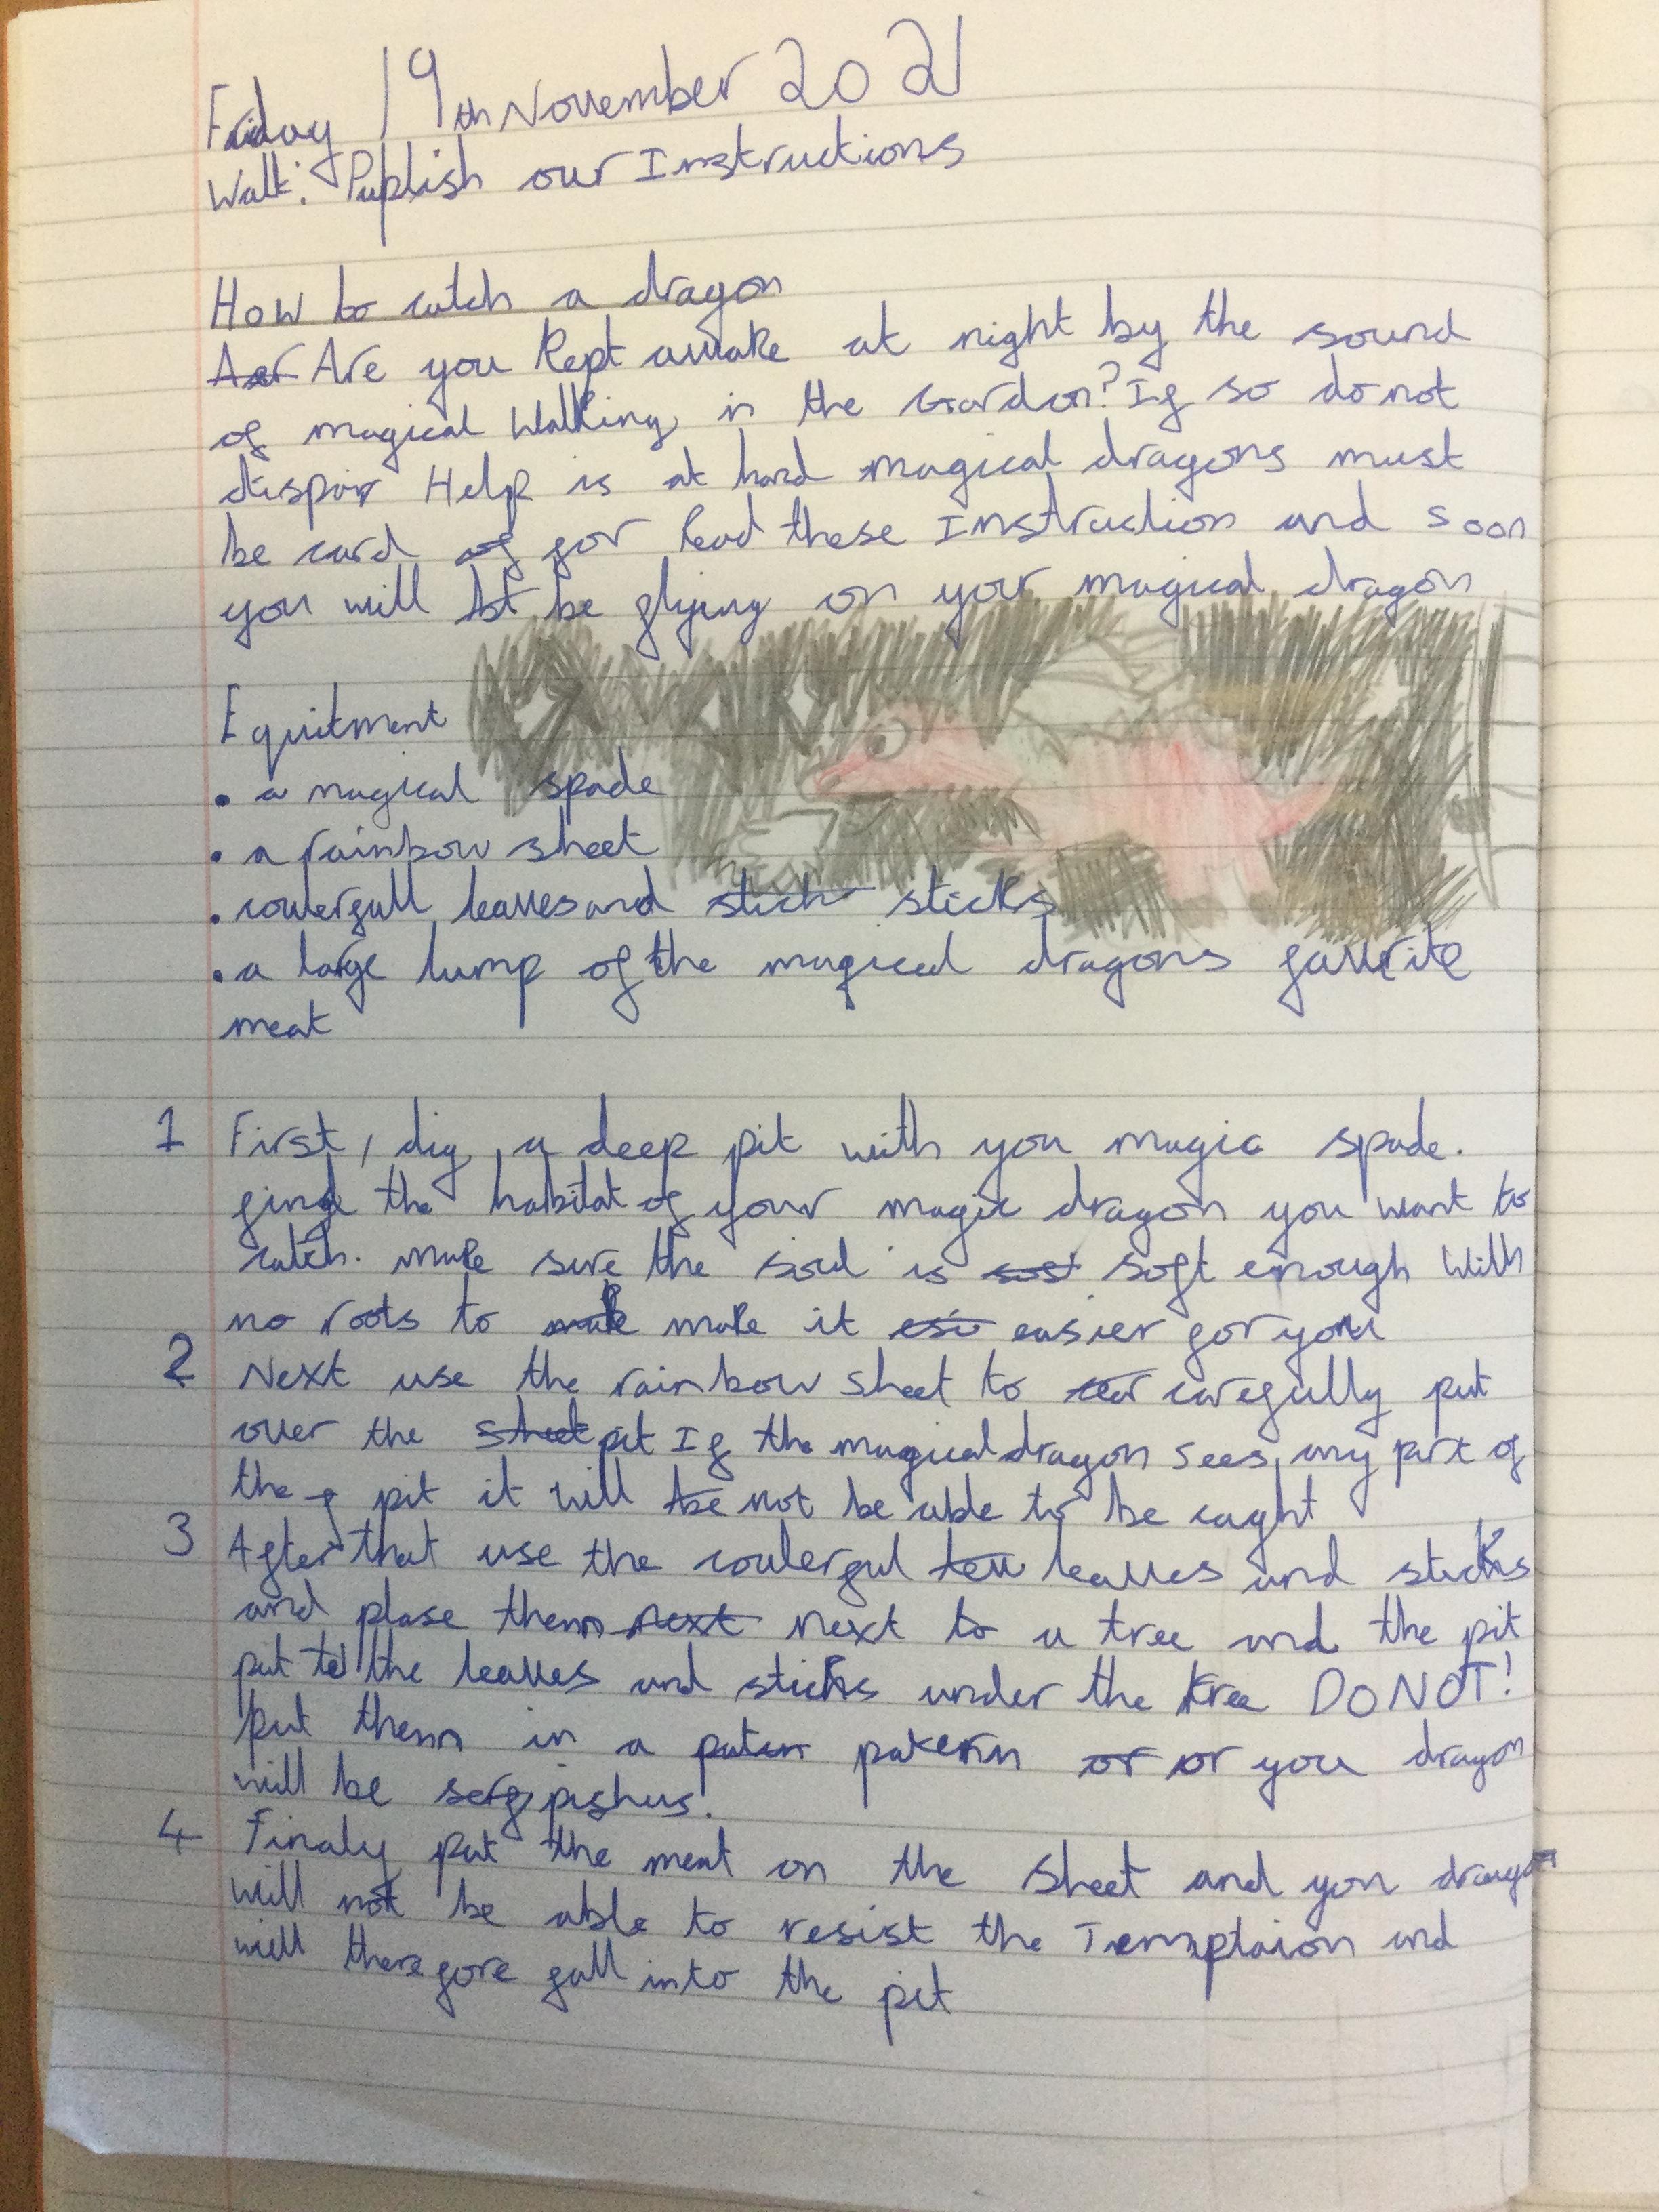 Friday 19th November 2021
Walt: Publish our Instructions
How to catch a dragon
Are you kept awake at night by the sound
of magical walking in the Garden? If so do not
dispair Help is at hand magical dragons must
be card for Read these Instruction and soon
you will be flying on your magical dragon
Equitment
• a magical spade
• a rainbow sheet
• coulerfull leaves and sticks
• a large lump of the magical dragons favrite
meat
1 First, dig a deep pit with you magic spade.
find the habitat of your magic dragon you want to
catch. make sure the soul is soft enough with
no roots to make it easier for you
2 Next use the rainbow sheet to carefully put
over the pit If the magical dragon sees any part of
the pit it will not be able to be caght
3 After that use the coulerful leaves and sticks
and plase them next to a tree and the pit
put the leaves and sticks under the tree DO NOT!
put them in a patern or you dragon
will be serpishus!
4 Finaly put the meat on the sheet and you dragon
will not be able to resist the Temptaion and
will therefore fall into the pit